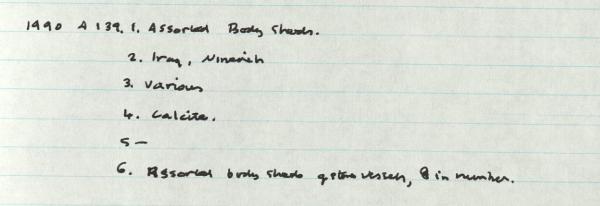 1990 A 139. 1. Assorted Body Sherds.
2. Iraq, Nineveh
3. Various
4. Calcite.
5 —
6. Assorted body sherds of stone vessels, 8 in number.